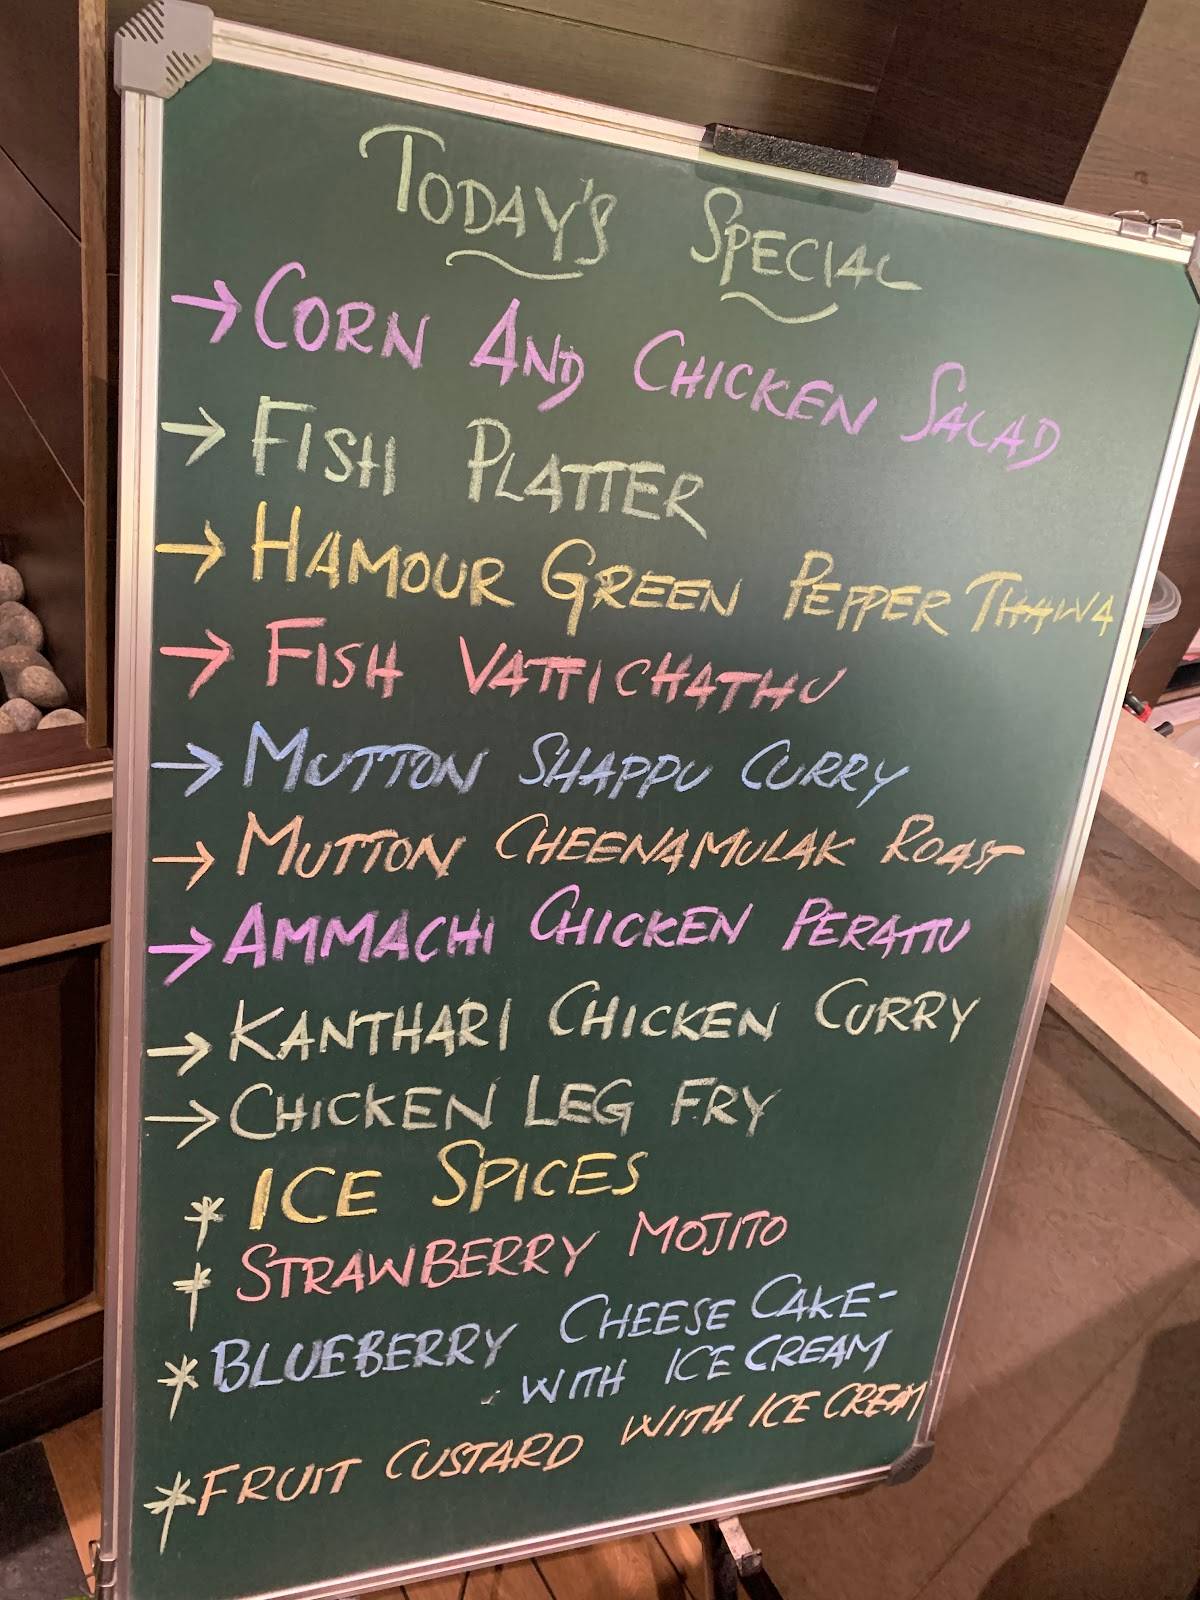 Today's Special
→ Corn And Chicken Salad
→ Fish Platter
→ Hamour Green Pepper Thawa
→ Fish Vattichathu
→ Mutton Shappu Curry
→ Mutton Cheenamulak Roast
→ Ammachi Chicken Perattu
→ Kanthari Chicken Curry
→ Chicken Leg Fry
* Ice Spices
* Strawberry Mojito
* Blueberry Cheese Cake-
with Ice Cream
* Fruit Custard with Ice Cream